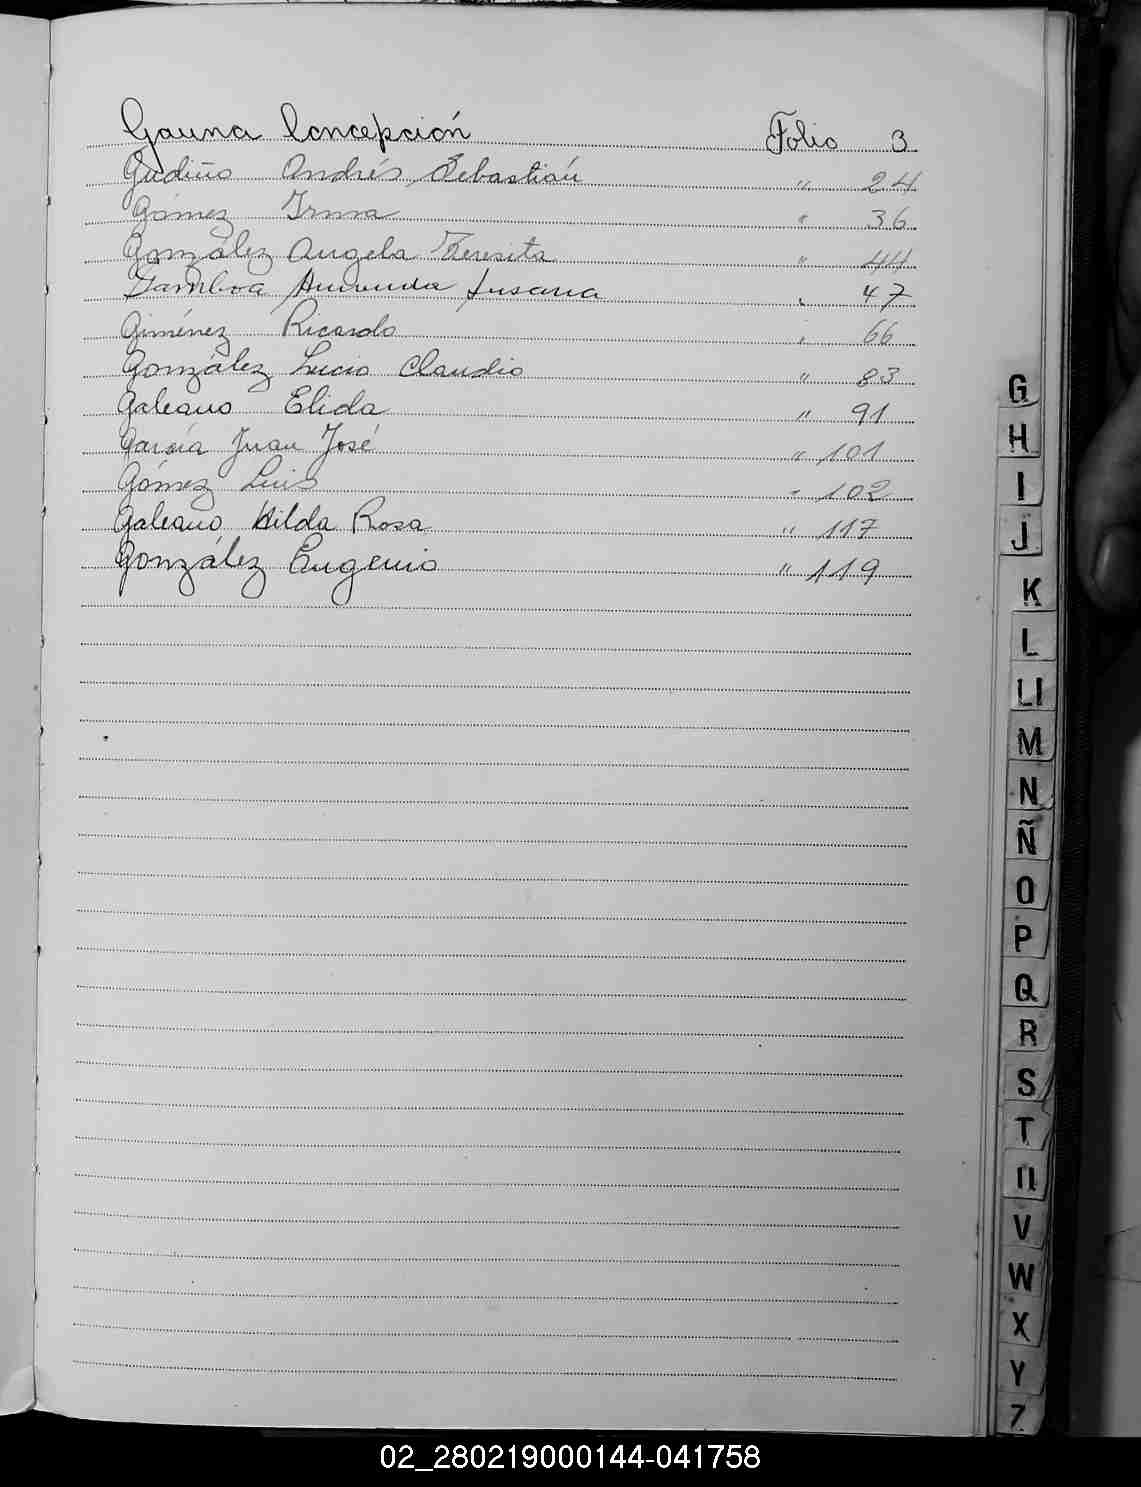 Gauna Concepción Folio 3
Gudiño Andrés Sebastián " 24
Gómez Irma " 36
González Angela Teresita " 44
Gamboa Amanda Susana " 47
Giménez Ricardo " 66
González Lucio Claudio " 83
Galeano Elida " 91
García Juan José " 101
Gómez Luis " 102
Galeano Hilda Rosa " 117
González Eugenio " 119
G
H
I
J
K
L
Ll
M
N
Ñ
O
P
Q
R
S
T
U
V
W
X
Y
Z
02_280219000144-041758